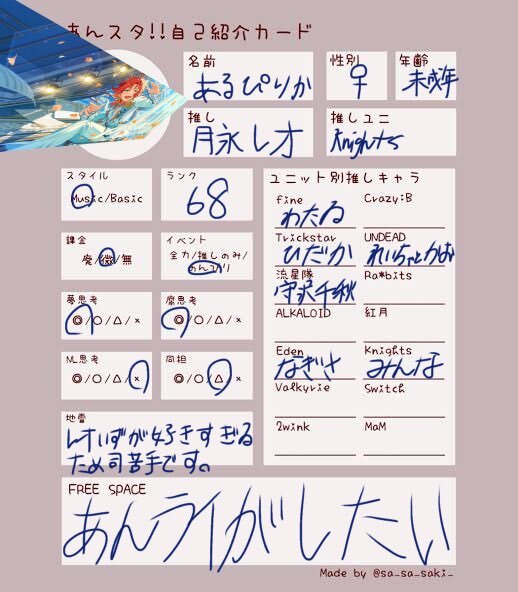 あんスタ!!自己紹介カード
名前
あるぴりか
性別
♀
年齢
未成年
推し
月永レオ
推しユニ
Knights
スタイル
Music/Basic
ランク
68
課金
廃/微/無
イベント
全力/推しのみ/
のんびり
夢思考
◎/○/△/×
腐思考
◎/○/△/×
NL思考
◎/○/△/×
同担
◎/○/△/×
地雷
レオいずが好きすぎる
ため司苦手です。
ユニット別推しキャラ
fine
わたる
Crazy:B
Trickstar
ひだか
UNDEAD
れいちゃとかお
流星隊
守沢千秋
Ra*bits
ALKALOID
紅月
Eden
なぎさ
Knights
みんな
Valkyrie
Switch
2wink
MaM
FREE SPACE
あんライがしたい
Made by @sa_sa_saki_